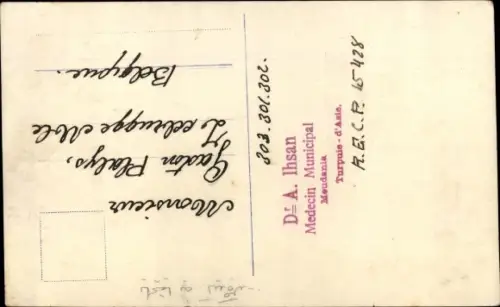 Monsieur
Gaston Plalys,
Zeebrugge Mole
Belgique.
303.301.302.
Dr A. Ihsan
Medecin Municipal
Moudania
Turquie - d'Asie.
R.E.C.P. 15428